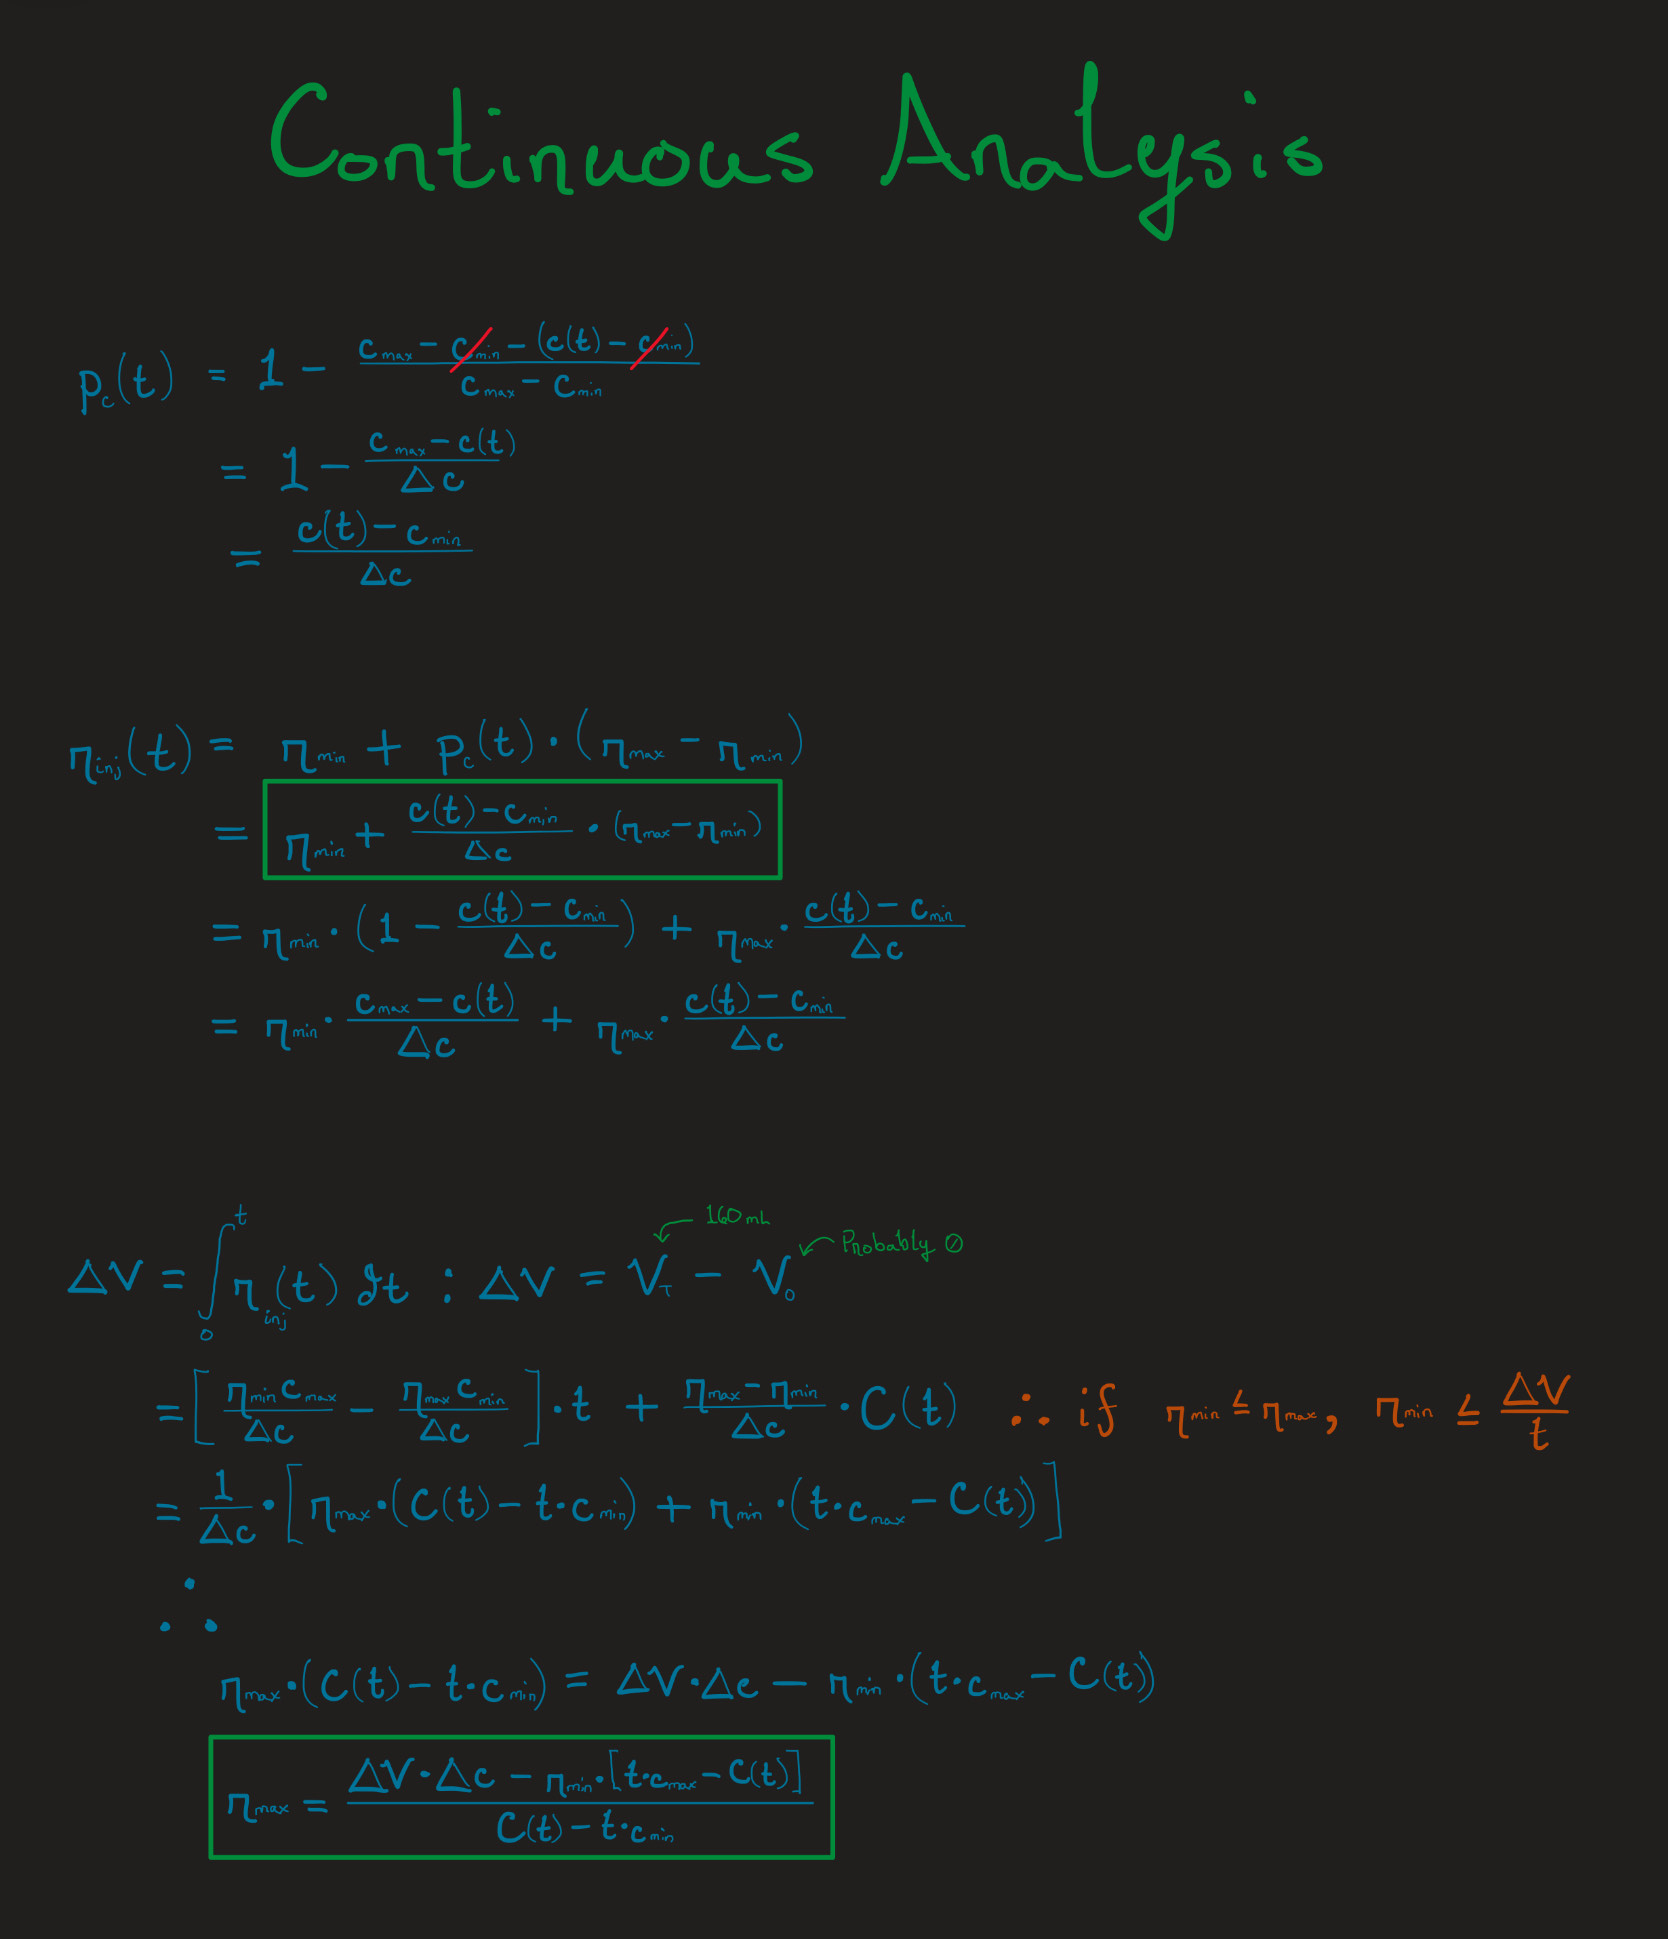 Continuous Analysis
p_c(t) = 1 - (c_max - c_min - (c(t) - c_min)) / (c_max - c_min)
= 1 - (c_max - c(t)) / Δc
= (c(t) - c_min) / Δc
r_inj(t) = r_min + p_c(t) · (r_max - r_min)
= r_min + (c(t) - c_min) / Δc · (r_max - r_min)
= r_min · (1 - (c(t) - c_min) / Δc) + r_max · (c(t) - c_min) / Δc
= r_min · (c_max - c(t)) / Δc + r_max · (c(t) - c_min) / Δc
160mL
Probably 0
ΔV = ∫_0^t r_inj(t) dt : ΔV = V_T - V_0
= [r_min c_max / Δc - r_max c_min / Δc] · t + (r_max - r_min) / Δc · C(t) ∴ if r_min ≤ r_max, r_min ≤ ΔV / t
= 1 / Δc · [r_max · (C(t) - t · c_min) + r_min · (t · c_max - C(t))]
∴
r_max · (C(t) - t · c_min) = ΔV · Δc - r_min · (t · c_max - C(t))
r_max = (ΔV · Δc - r_min · [t · c_max - C(t)]) / (C(t) - t · c_min)